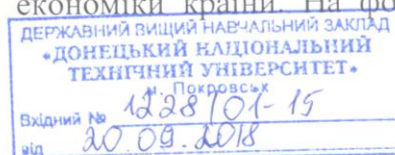 економіки країни. На фо
ДЕРЖАВНИЙ ВИЩИЙ НАВЧАЛЬНИЙ ЗАКЛАД
«ДОНЕЦЬКИЙ НАЦІОНАЛЬНИЙ
ТЕХНІЧНИЙ УНІВЕРСИТЕТ»
м. Покровськ
Вхідний № 1228/01-15
від 20.09.2018